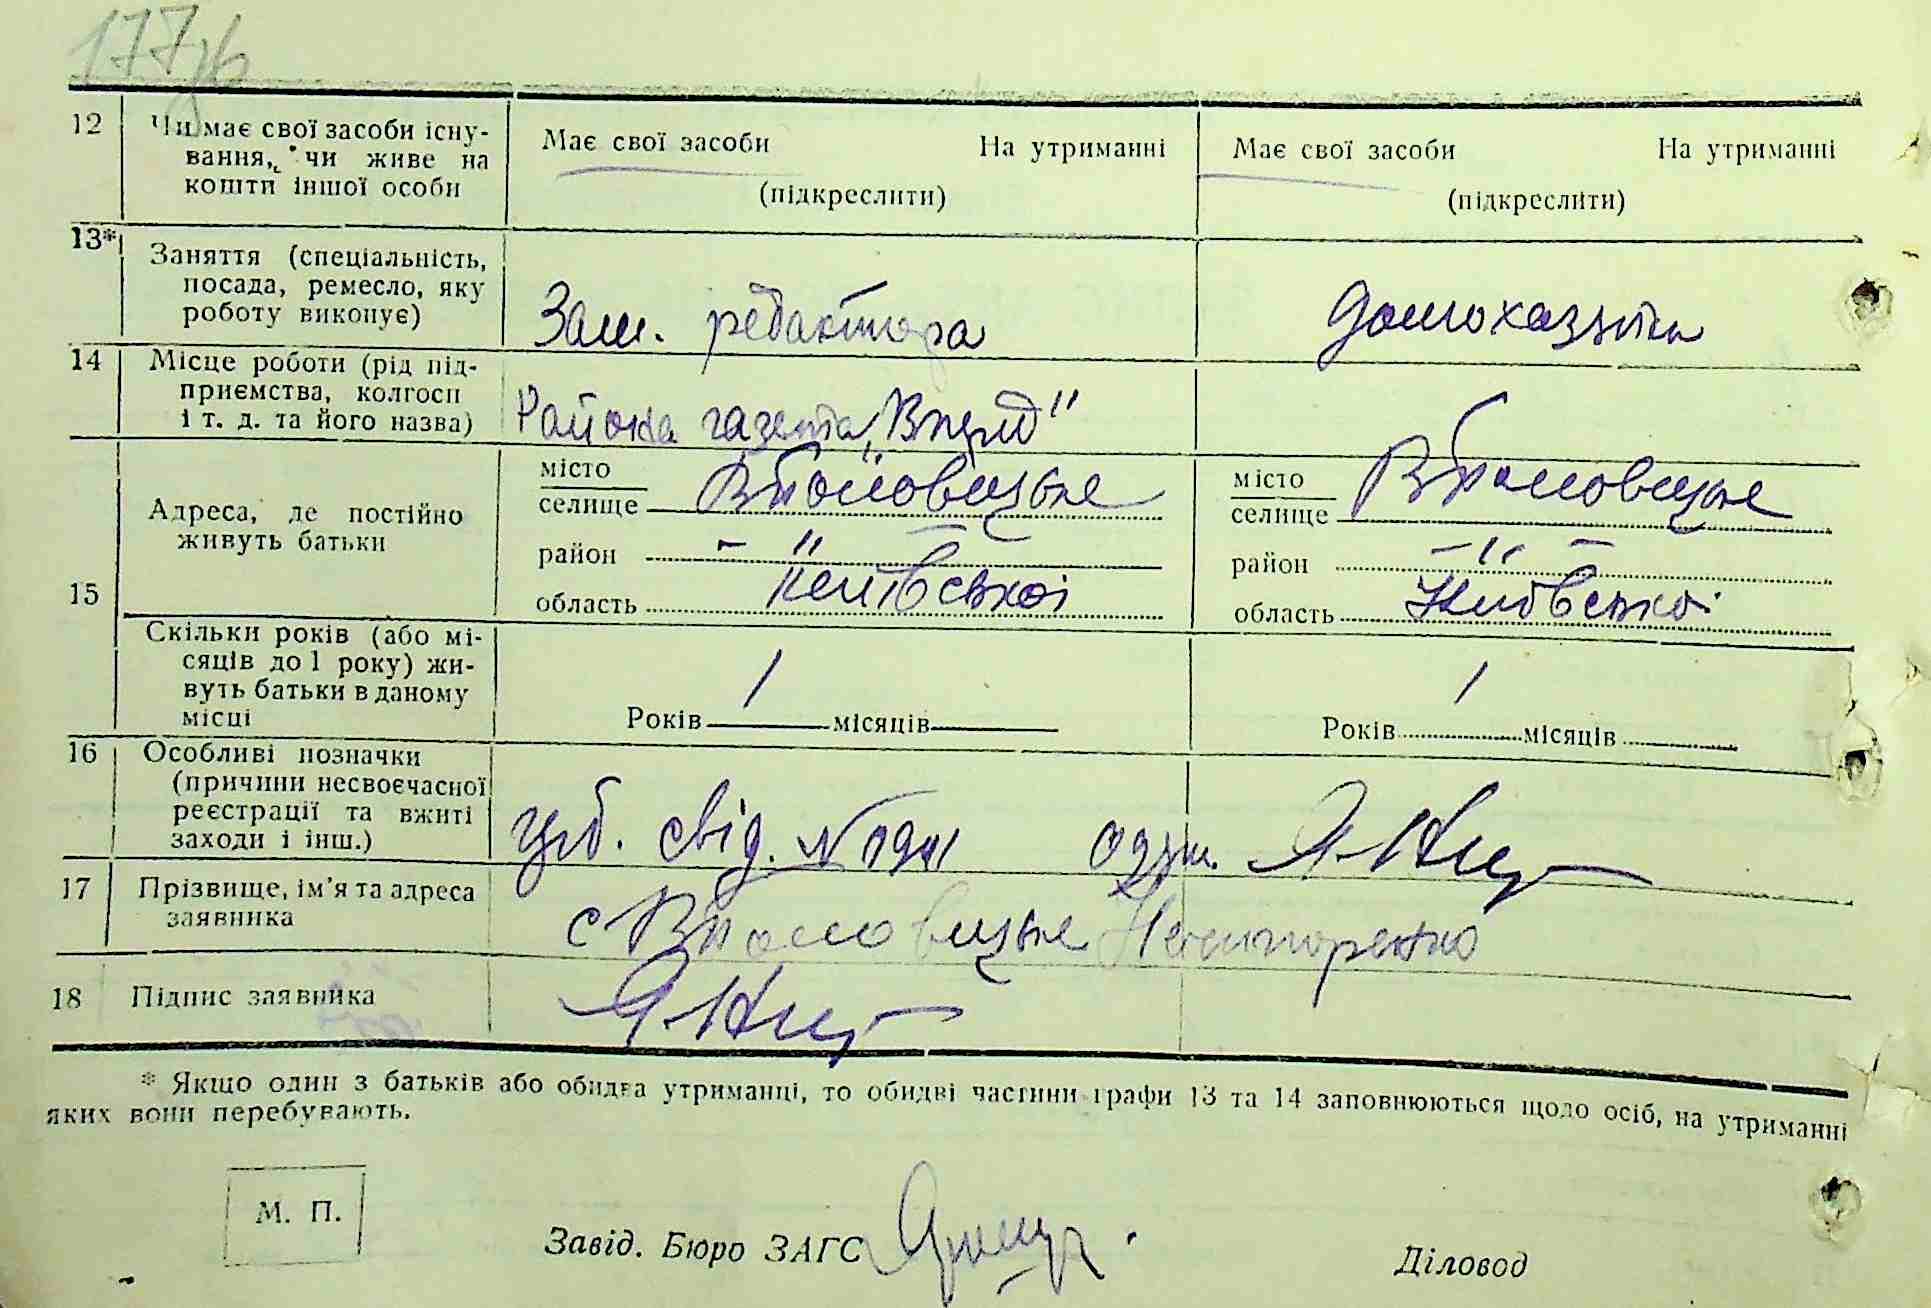 177 зв
12 Чи має свої засоби існу- Має свої засоби На утриманні Має свої засоби На утриманні
вання, чи живе на
кошти іншої особи (підкреслити) (підкреслити)
13* Заняття (спеціальність,
посада, ремесло, яку
роботу виконує) Зам. редактора домохазяйка
14 Місце роботи (рід під-
приємства, колгосп
і т. д. та його назва) Районна газета „Вперед"
15 Адреса, де постійно
живуть батьки
місто місто
селище селище
район — " — район — " —
область Київської область Київської
Скільки років (або мі-
сяців до 1 року) жи-
вуть батьки в даному
місці Років 1 місяців Років 1 місяців
16 Особливі позначки
(причини несвоєчасної
реєстрації та вжиті
заходи і інш.) свід. №
17 Прізвище, ім'я та адреса
заявника с
18 Підпис заявника
* Якщо один з батьків або обидва утриманні, то обидві частини графи 13 та 14 заповнюються щодо осіб, на утриманні
яких вони перебувають.
М. П.
Завід. Бюро ЗАГС Діловод